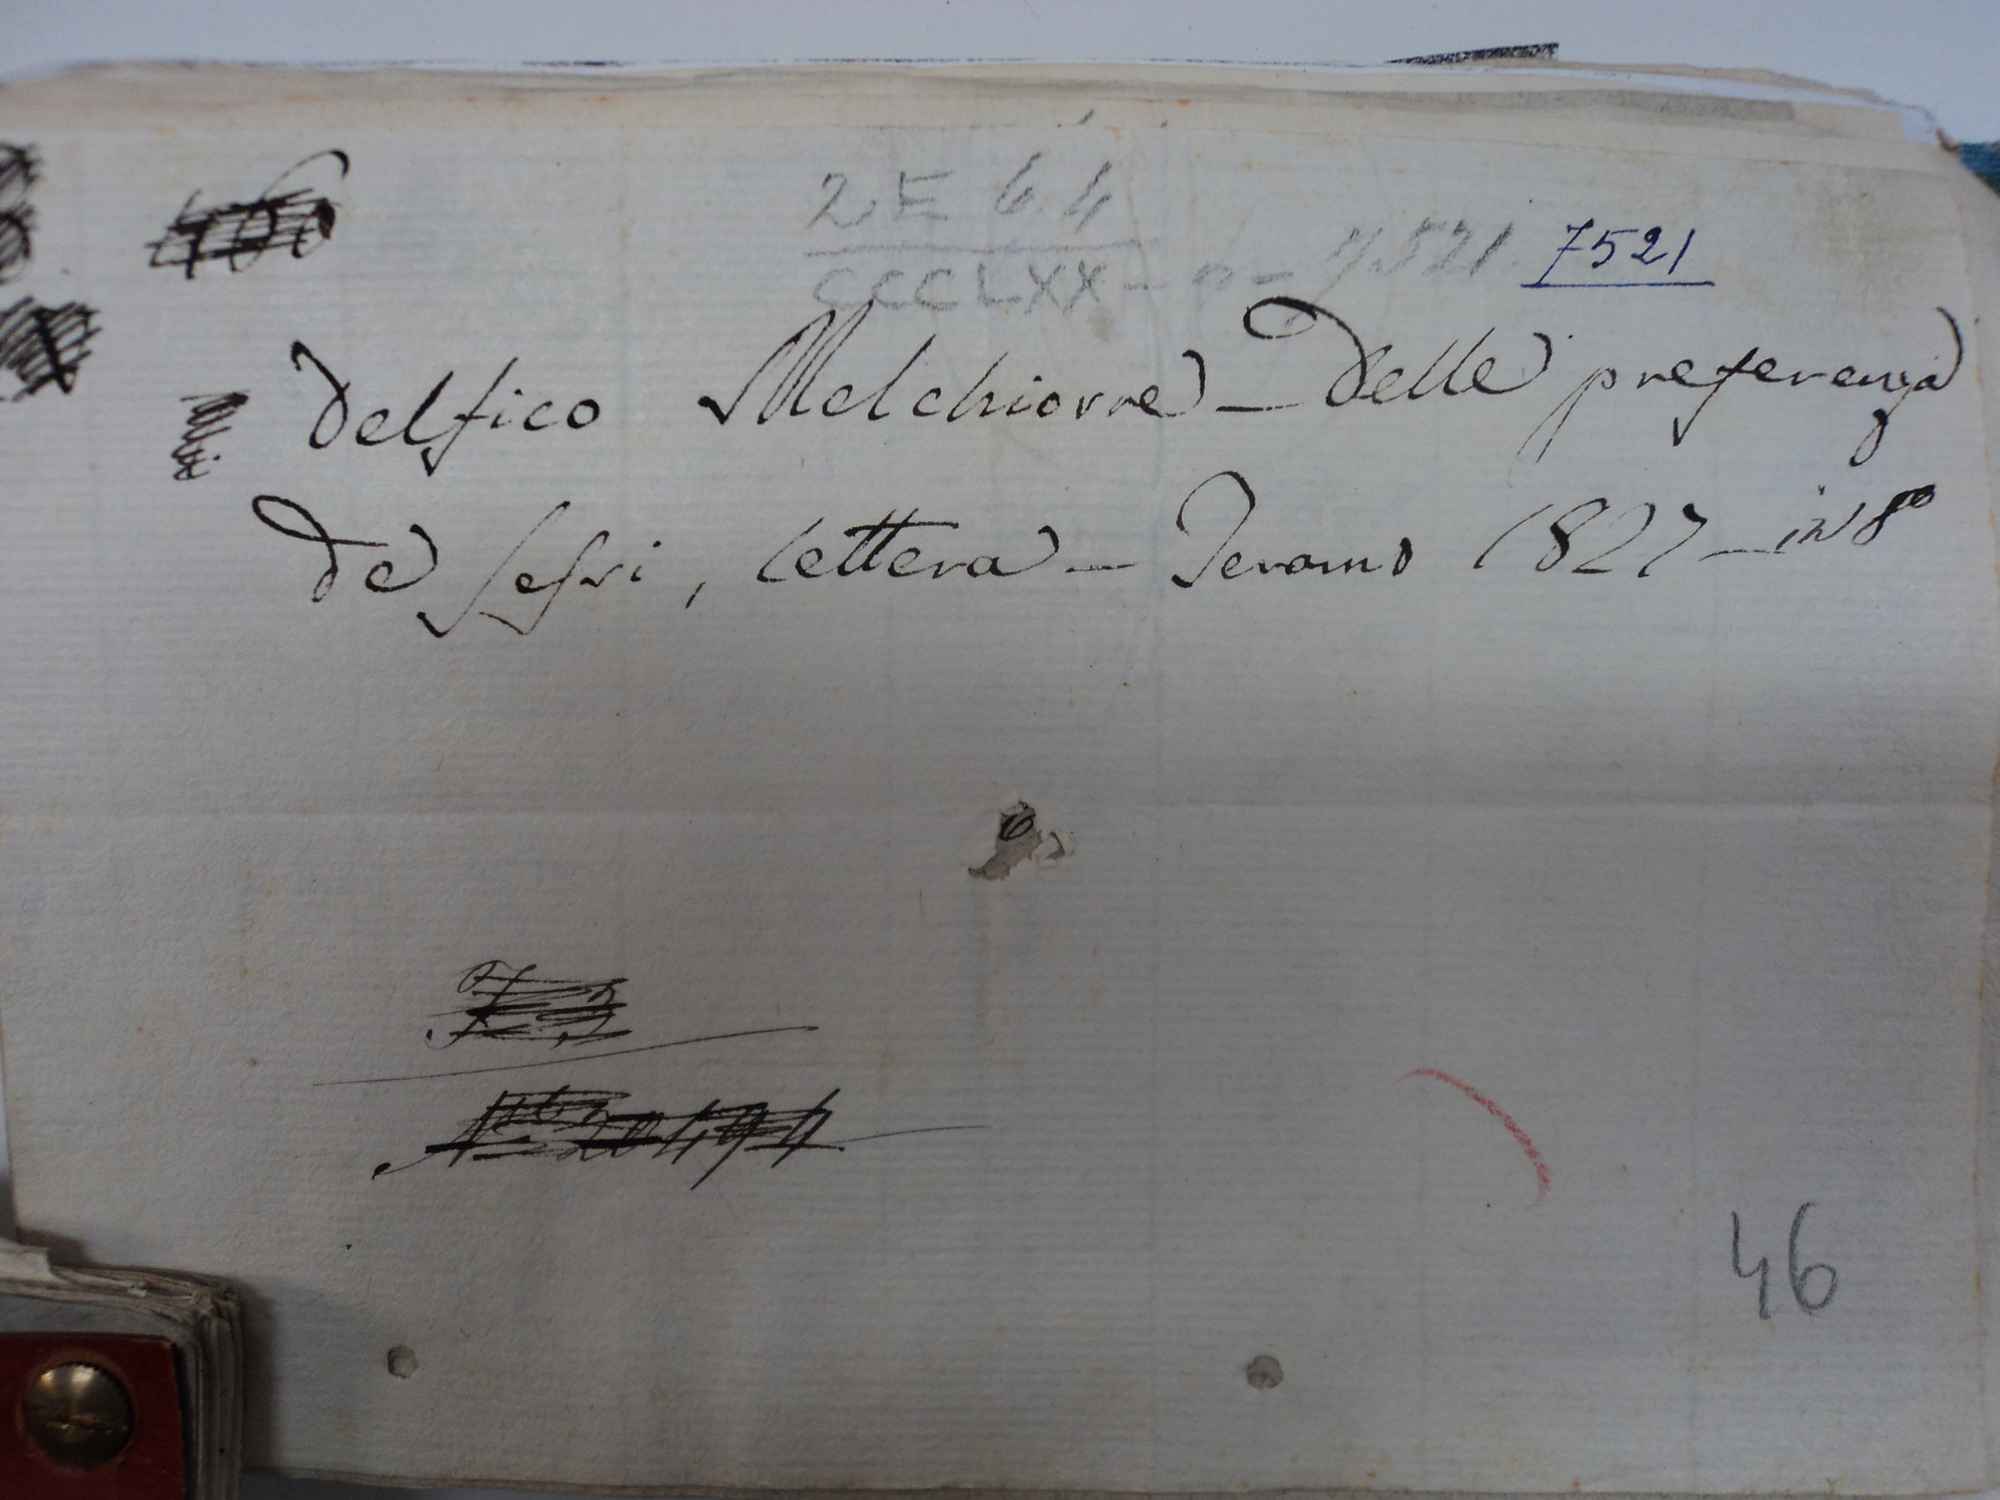 2 E 6 4
CCCLXX - p - 7521. 7521
Delfico Melchiorre - Delle preferenza
de Sessi, lettera - Teramo 1827 - in 8°
46